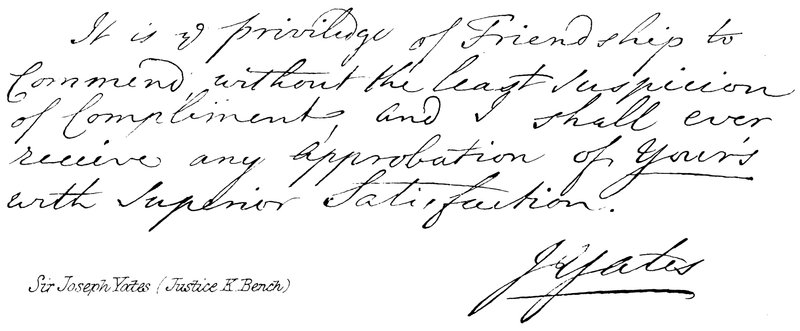 It is ye priviledge of Friendship to
Commend, without the least suspicion
of Compliment, and I shall ever
receive any Approbation of Your's
with superior Satisfaction.
J Yates
Sir Joseph Yates (Justice K. Bench)